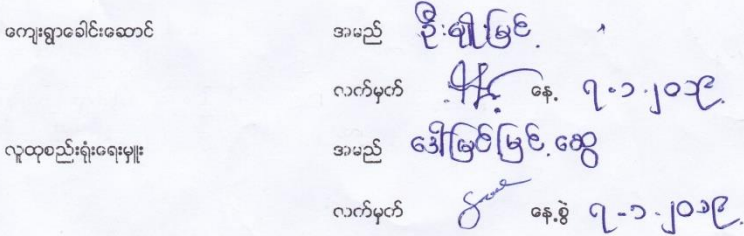 ကျေးရွာခေါင်းဆောင် အမည် ဦးချို့မြင့်
လက်မှတ် နေ့ ၇-၁-၂၀၁၉
လူထုစည်းရုံးရေးမှူး အမည် ဒေါ်မြင့်မြင့်ဆွေ
လက်မှတ် နေ့စွဲ ၇-၁-၂၀၁၉